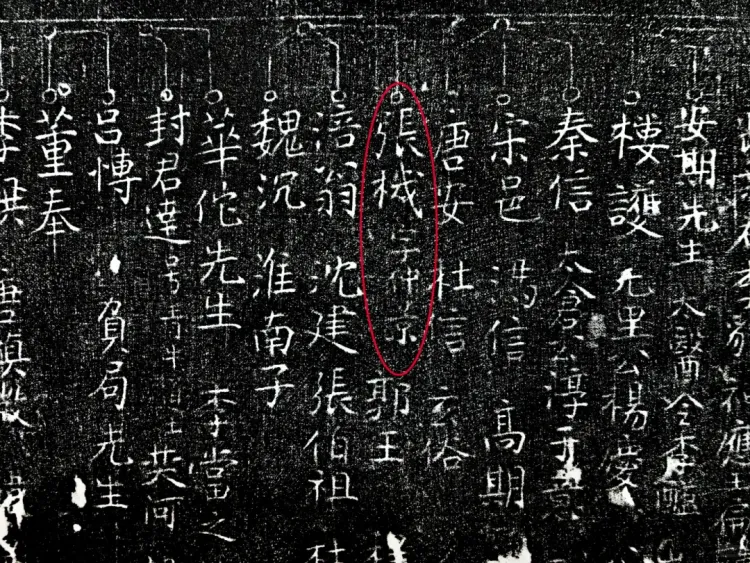 安期先生 太醫令李醯
樓護 元里公楊慶
秦信 太倉公淳于意
宋邑 馮信 高期
唐安 杜信 玄俗
張械 字仲京 郭王
涪翁 沈建 張伯祖 杜
魏沉 淮南子
華佗先生 李當之
封君達 号青牛道士
呂愽 負局先生
董奉